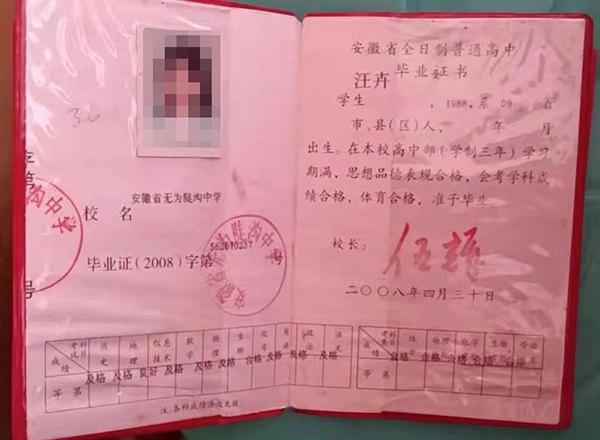 3.6
字第
号
无为陡沟中学
安徽省无为陡沟中学
校 名
562670237
毕业证(2008)字第
考试科目 历史 地理 信息技术 数学 物理 生物 化学 英 政治 语文
成绩
及格 及格 良好 及格 及格 及格 合格 及格 及格 及格
等第
注:各科成绩涂改无效
安徽省全日制普通高中
毕业证书
汪卉
学生 , 1988. 系 09 省
市、县(区)人, 年 月
出生。在本校高中部(学制三年)学习
期满,思想品德表现合格,会考学科成
绩合格,体育合格,准予毕业
校长:
伍辉
二〇〇八年四月三十日
考查科目 物理 化学 生物 劳动
成绩
合格 合格 合格 合格 合格
等第